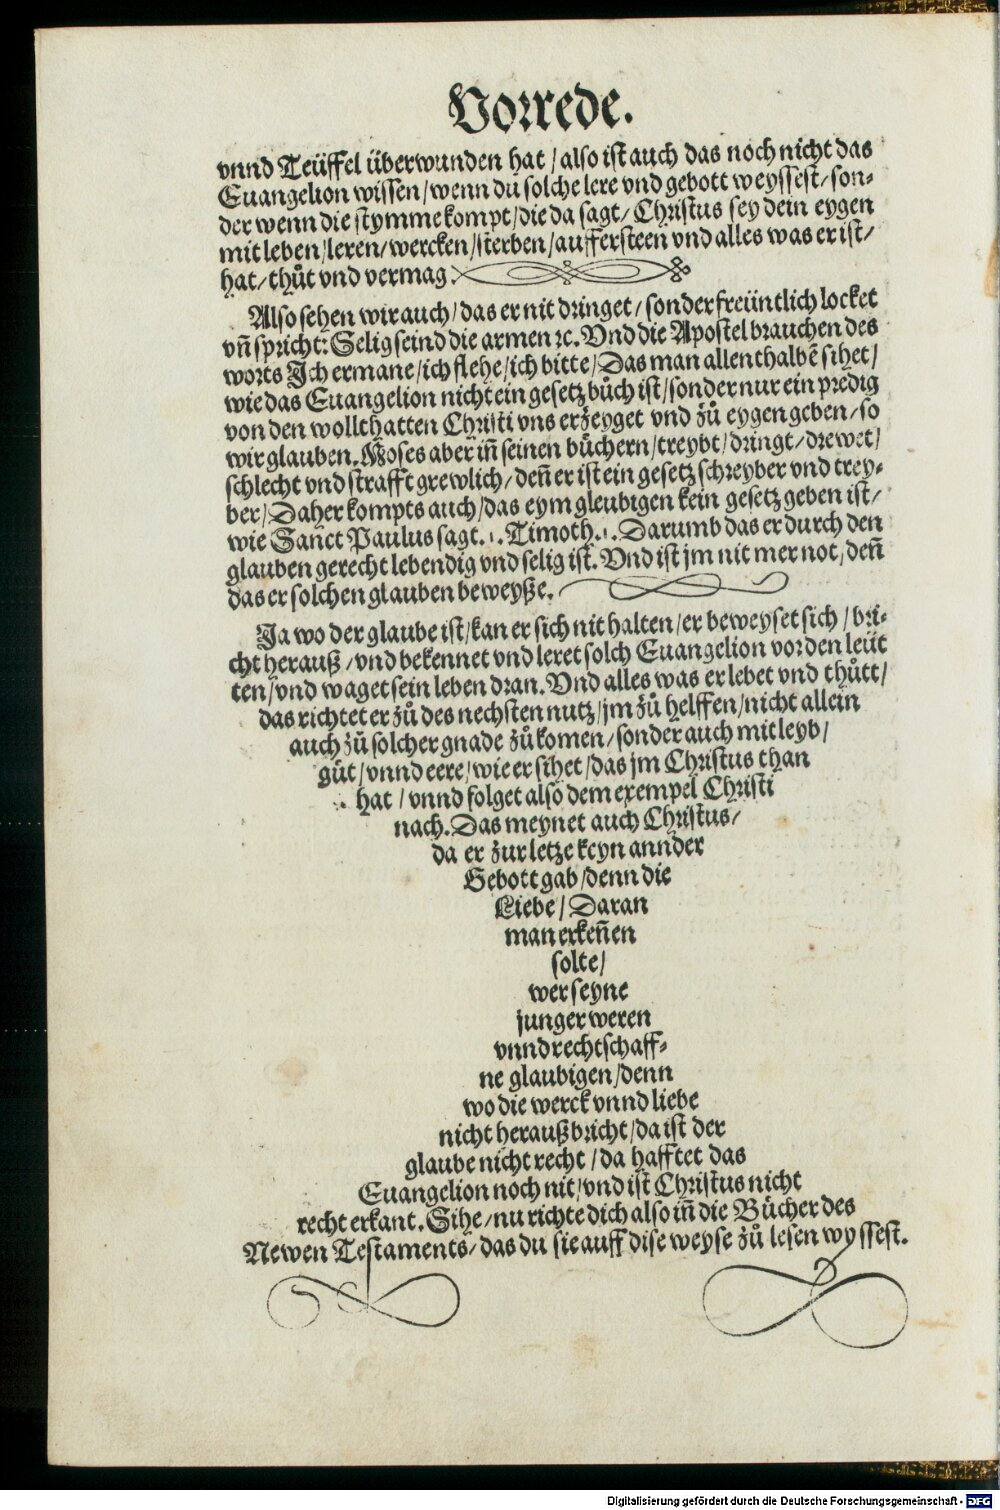 Vorrede.
vnnd Teüffel überwunden hat / also ist auch das noch nicht das
Euangelion wissen / wenn du solche lere vnd gebott weyssest / son⸗
der wenn die stymme kompt / die da sagt / Christus sey dein eygen
mit leben / leren / wercken / sterben / auffersteen vnd alles was er ist /
hat / thůt vnd vermag.
Also sehen wir auch / das er nit dringet / sonder freüntlich locket
vñ spricht: Selig seind die armen ꝛc. Vnd die Apostel brauchen des
worts Ich ermane / ich flehe / ich bitte / Das man allenthalbē sihet /
wie das Euangelion nicht ein gesetz bůch ist / sonder nur ein predig
von den wollthatten Christi vns erzeyget vnd zů eygen geben / so
wir glauben. Moses aber iñ seinen bůchern / treybt / dringt / drewet /
schlecht vnd strafft grewlich / deñ er ist ein gesetz schreyber vnd trey⸗
ber / Daher kompts auch / das eym gleubigen kein gesetz geben ist /
wie Sanct Paulus sagt .1. Timoth .1. Darumb das er durch den
glauben gerecht lebendig vnd selig ist. Vnd ist jm nit mer not / deñ
das er solchen glauben beweyße.
Ja wo der glaube ist / kan er sich nit halten / er beweyset sich / bri⸗
cht herauß / vnd bekennet vnd leret solch Euangelion vor den leüt
ten / vnd waget sein leben dran. Vnd alles was er lebet vnd thůtt /
das richtet er zů des nechsten nutz / jm zů helffen / nicht allein
auch zů solcher gnade zů komen / sonder auch mit leyb /
gůt / vnnd eere / wie er sihet / das jm Christus than
hat / vnnd folget also dem exempel Christi
nach. Das meynet auch Christus /
da er zur letze keyn annder
Gebott gab / denn die
Liebe / Daran
man erkeñen
solte /
wer seyne
junger weren
vnnd rechtschaff⸗
ne glaubigen / denn
wo die werck vnnd liebe
nicht herauß bricht / da ist der
glaube nicht recht / da hafftet das
Euangelion noch nit / vnd ist Christus nicht
recht erkant. Sihe / nu richte dich also iñ die Bücher des
Newen Testaments / das du sie auff dise weyse zů lesen wyssest.
Digitalisierung gefördert durch die Deutsche Forschungsgemeinschaft - DFG